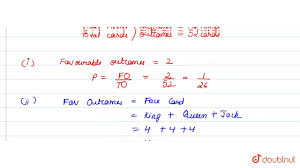 Total cards / outcomes = 52 cards
(i) Favourable outcomes = 2
P = FO/TO = 2/52 = 1/26
(ii) Fav Outcomes = Face Card
= King + Queen + Jack
= 4 + 4 + 4
doubtnut